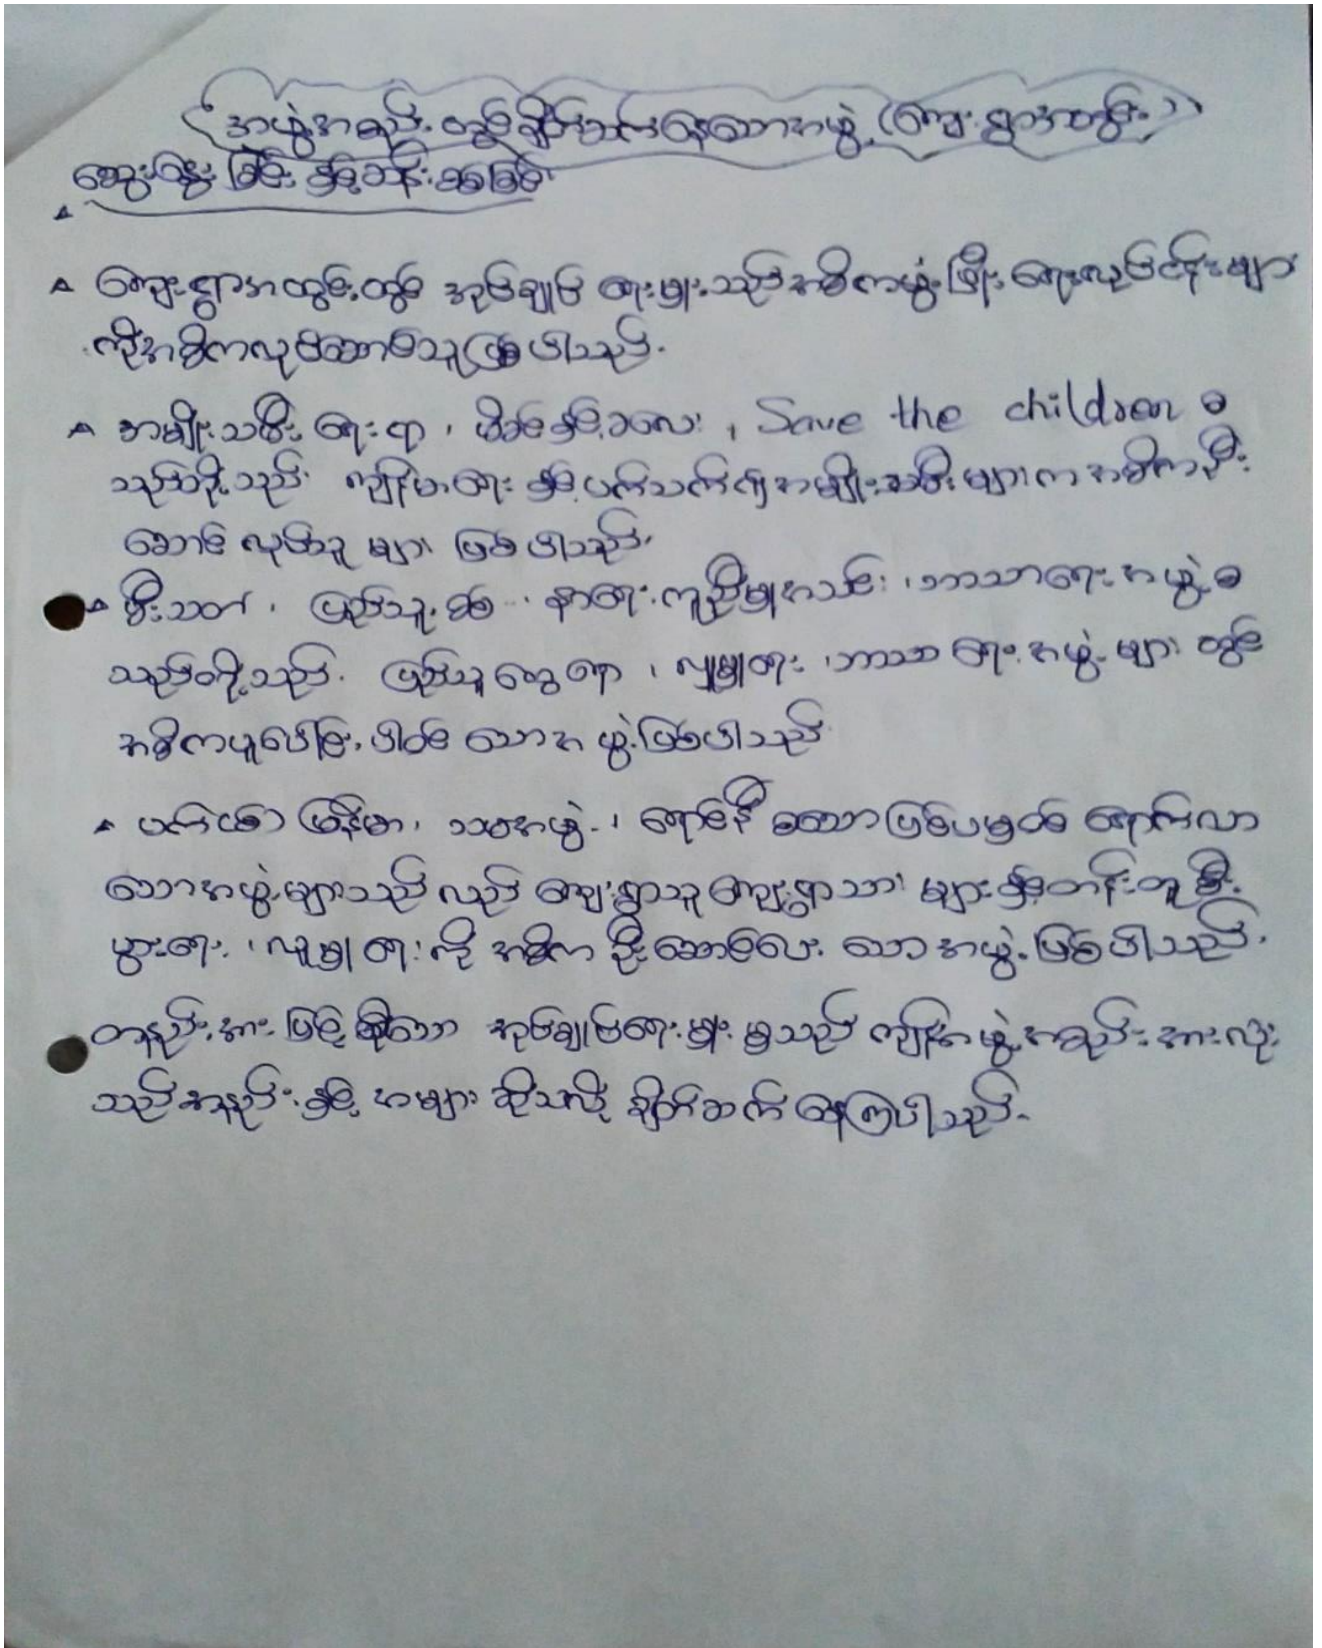 အဖွဲ့အစည်းတွင်ချိတ်ဆက်နေသောအဖွဲ့ (ကျေးရွာအတွင်း)
ဆွေးနွေးခြင်းနှင့်ဆန်းစစ်ခြင်း
ကျေးရွာအတွင်းတွင် အုပ်ချုပ်ရေးမှူးသည်အဓိကဖွံ့ဖြိုးရေးလုပ်ငန်းများ
ကိုအဓိကလုပ်ဆောင်သူဖြစ်ပါသည်.
အမျိုးသမီးရေးရာ၊ မိခင်နှင့်ကလေး၊ Save the children စ
သည်တို့သည် ကျန်းမာရေးနှင့်ပက်သက်၍အမျိုးသမီးများကအဓိကဦး
ဆောင်လုပ်သူများ ဖြစ်ပါသည်.
မီးသတ်၊ ပြည်သူ့စစ်၊ နာရေးကူညီမှုအသင်း၊ ဘာသာရေးအဖွဲ့စ
သည်တို့သည် ပြည်သူ့ရေးရာ၊ လူမှုရေး၊ဘာသာရေးအဖွဲ့များတွင်
အဓိကပူးပေါင်းပါဝင်သောအဖွဲ့ဖြစ်ပါသည်
ပက်ထ်မြန်မာ၊ သမအဖွဲ့၊ ရောင်နီစသောပြင်ပမှဝင်ရောက်လာ
သောအဖွဲ့များသည်လည်း ကျေးရွာသူကျေးရွာသားများနှင့်တန်းတူစီး
ပွားရေး၊ လူမှုရေးကို အဓိကဦးဆောင်ပေးသောအဖွဲ့ဖြစ်ပါသည်.
တနည်းအားဖြင့်ဆိုသော် အုပ်ချုပ်ရေးမှူးမှသည်ကျန်အဖွဲ့အစည်းအားလုံး
သည်အနည်းနှင့်အများဆိုသလိုချိတ်ဆက်နေကြပါသည်.